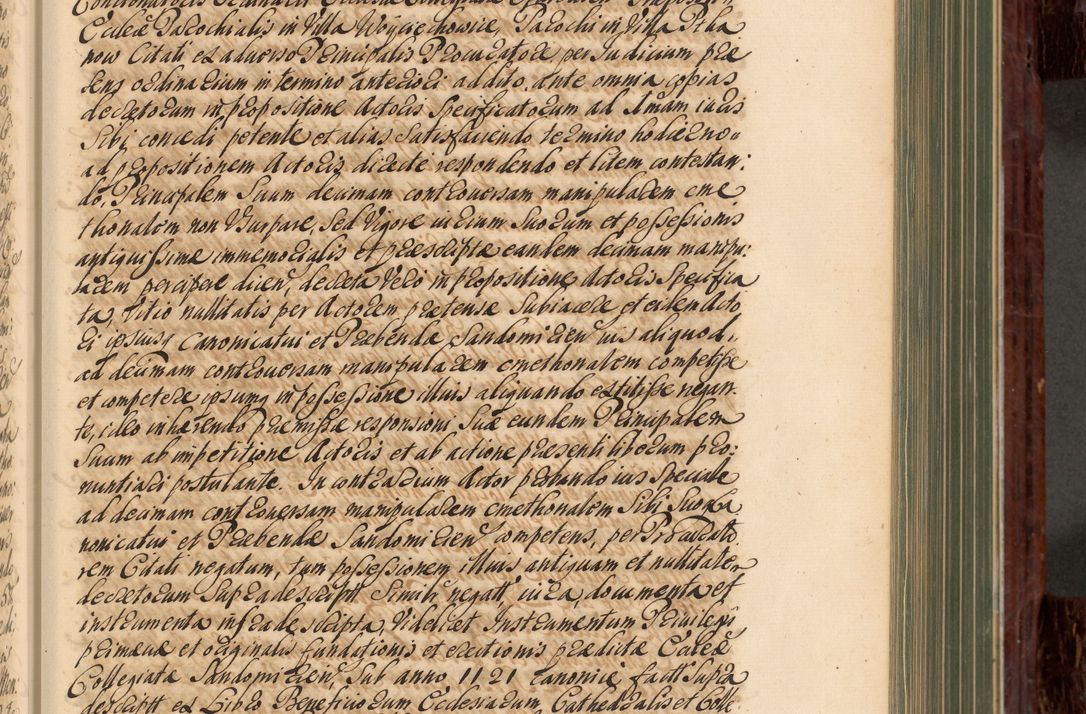 Ecclesiæ Parochialis in Villa Woycięchowice, Parochi in Villa Ptka
now Citati ex adverso Principalis Procuratore, per Judicium præ
sens ordinarium in termino anteriori addito, ante omnia copias
decretorum in propositione Actoris Specificatorum ad Imam iuris
sibi concedi petente et alias Satisfaciendo termino hodierno
ad propositionem Actoris directe respondendo et litem contestan:
do, Principalem Suum decimam controversam manipularem cme
thonalem non Usurpare, Sed Vigore iurium Suorum et possessionis
antiquissimæ immemorialis et præscriptæ eandem decimam manipu:
larem percipere dicen, decreta Vero in propositione Actoris Specifica
ta, Vitio nullitatis per Actorem prætensæ Subiacere et eidem Acto
ri ipsiusq Canonicatui et Præbendæ Sandomirien ius aliquod,
ad decimam controversam manipularem cmethonalem competisse
et competere ipsumq in possessione illius aliquando extitisse negan
te, ideo inhærendo præmissæ responsioni Suæ eundem Principalem
Suum ab impetitione Actoris et ab actione præsenti liberum pro:
nuntiari postulante. In contrarium Actor probando ius Speciale
ad decimam controversam manipularem cmethonalem Sibi Suo Ca
nonicatui et Præbendæ Sandomirien competens, per Procurato
rem Citati negatum, tum possessionem illius antiquam et nullitatem
decretorum Supradescriptt Simili negatt, iura, documenta et
instrumenta infradescripta, Videlicet Instrumentum Privilegii
primævæ et originalis fundationis et erectionis prædictæ Ecclesiæ
Collegiatæ Sandomirien, Sub anno 1121 Canonice fact Supra
descriptt ex Libro Beneficiorum Ecclesiarum, Cathedralis et Colle